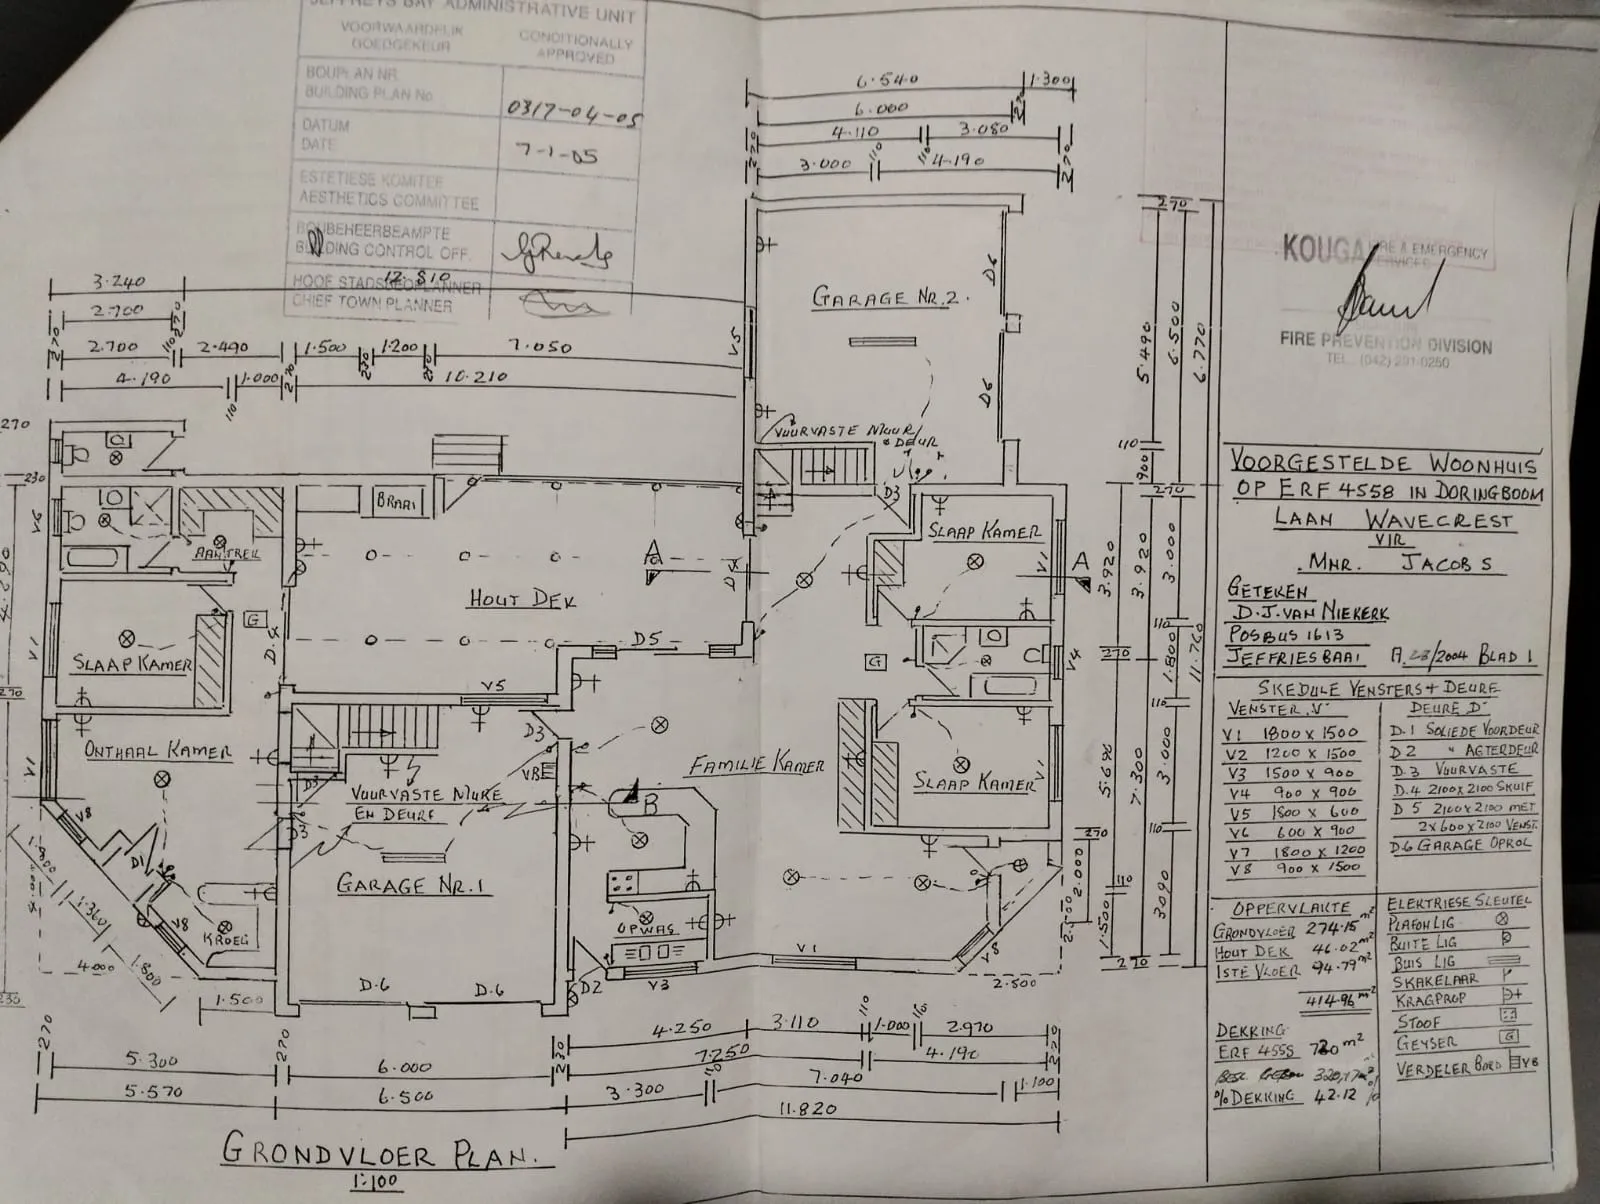 JEFFREYS BAY ADMINISTRATIVE UNIT
VOORWAARDELIK GOEDGEKEUR
CONDITIONALLY APPROVED
BOUPLAN NR.
BUILDING PLAN No
0317-04-05
DATUM
DATE
7-1-05
ESTETIESE KOMITEE
AESTHETICS COMMITTEE
BOUBEHEERBEAMPTE
BUILDING CONTROL OFF.
HOOF STADSBEPLANNER
CHIEF TOWN PLANNER
12.810
6.540
1.300
6.000
270
4.110
110
3.080
270
3.000
110
110
4.190
270
3.240
2.700
270
270
2.700
110
2.490
1.500
230
1.200
230
7.050
4.190
110
1.000
270
10.210
270
230
V5
GARAGE NR.2.
D6
D6
VUURVASTE MUUR
& DEUR
D3
BRAAI
V6
AANTREK
A
HOUT DEK
D4
D5
SLAAP KAMER
V1
A
G
V4
G
D.4
SLAAP KAMER
V1
V5
D3
ONTHAAL KAMER
V1
V8
D1
D3
D3
VUURVASTE MURE
EN DEURE
VB
B
FAMILIE KAMER
SLAAP KAMER
V1
GARAGE NR.1
V8
KROEG
OPWAS
D.6
D.6
D2
V3
V1
V8
270
5.490
6.500
6.770
110
900
270
3.920
3.920
3.000
110
270
1.800
11.760
110
5.690
7.300
3.000
110
270
2.000
110
3090
1.500
2.500
270
2.500
270
1.800
1.360
1.800
4.000
4.000
230
1.500
270
5.300
270
6.000
230
4.250
3.110
110
1.000
110
2.970
270
7.250
4.190
5.570
6.500
3.300
110
7.040
1.100
11.820
GRONDVLOER PLAN.
1:100
KOUGA FIRE & EMERGENCY
SERVICES
FIRE PREVENTION DIVISION
TEL. (042) 291-0250
VOORGESTELDE WOONHUIS
OP ERF 4558 IN DORINGBOOM
LAAN WAVECREST
VIR
MNR. JACOBS
GETEKEN
D.J. VAN NIEKERK
POSBUS 1613
JEFFRIESBAAI A 28/2004 BLAD 1
SKEDULE VENSTERS + DEURE
VENSTER "V"
V1 1800 x 1500
V2 1200 x 1500
V3 1500 x 900
V4 900 x 900
V5 1800 x 600
V6 600 x 900
V7 1800 x 1200
V8 900 x 1500
DEURE D"
D.1 SOLIEDE VOORDEUR
D2 " AGTERDEUR
D.3 VUURVASTE
D.4 2100 x 2100 SKUIF
D5 2100 x 2100 MET
2 x 600 x 2100 VENST.
D.6 GARAGE OPROL
OPPERVLAKTE
GRONDVLOER 274.15 m²
HOUT DEK 46.02 m²
1STE VLOER 94.79 m²
414.96 m²
DEKKING
ERF 4558 m²
%DEKKING 42.12 %
ELEKTRIESE SLEUTEL
PLAFON LIG
BUITE LIG
BUIS LIG
SKAKELAAR
KRAGPROP
STOOF
GEYSER G
VERDELER BORD VB